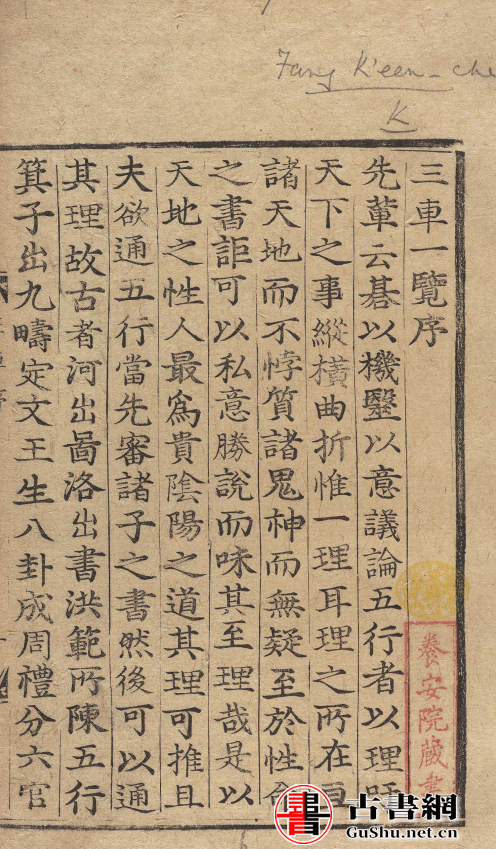 Fang K'een-che
K
三車一覽序
先軰云碁以機毉以意議論五行者以理吁
天下之事縱橫曲折惟一理耳理之所在亘
諸天地而不悖質諸鬼神而無疑至於性命
之書詎可以私意勝說而昧其至理哉是以
天地之性人最爲貴陰陽之道其理可推且
夫欲通五行當先審諸子之書然後可以通
其理故古者河出啚洛出書洪範所陳五行
箕子出九疇定文王生八卦成周禮分六官
養安院藏書
書 古書網
GuShu.net.cn